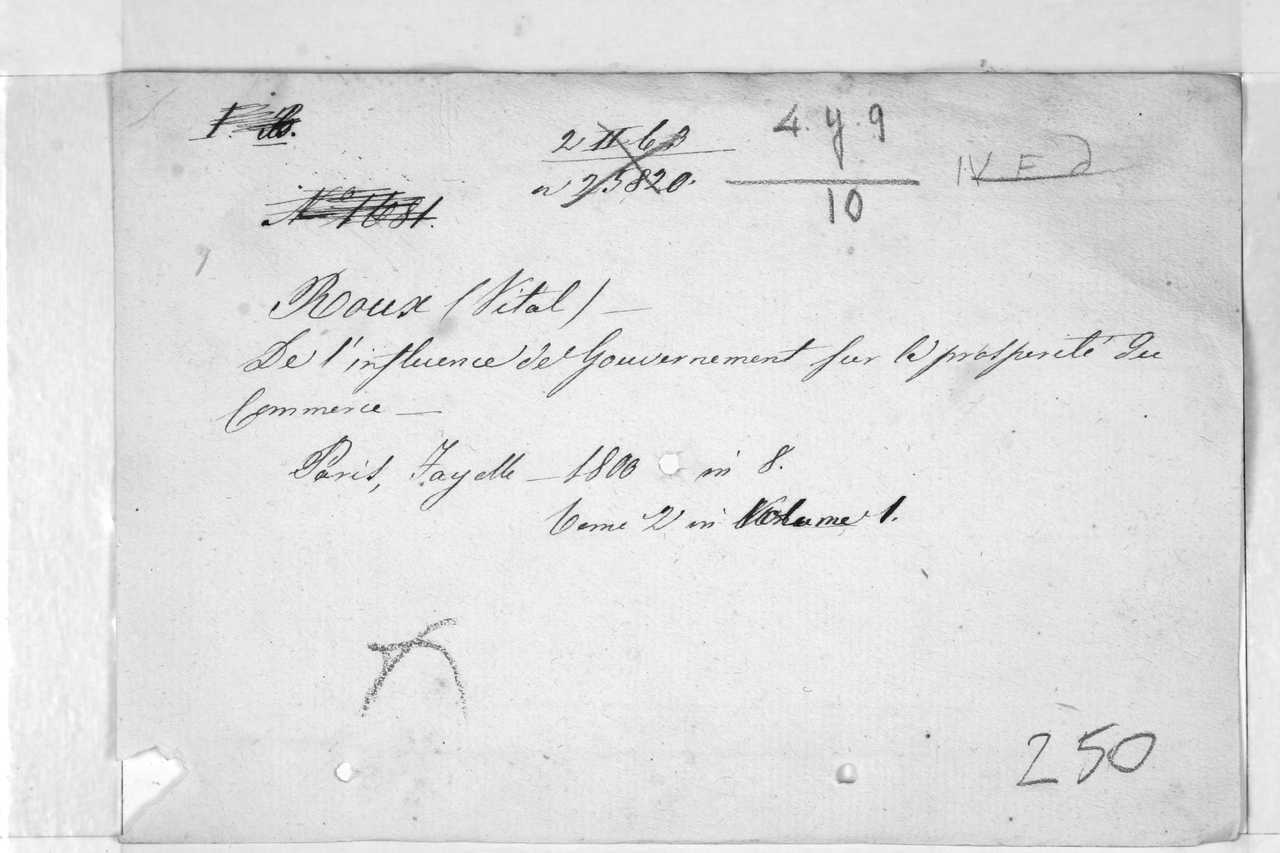 4. y. 9
10
2 II 6 3
n 25820.
IV F d
N.o 1681.
Roux (Vital) —
De l'influence de Gouvernement sur la prosperité du
Commerce —
Paris, Fayelle — 1800 in 8.
tome 2 in Volume 1.
250